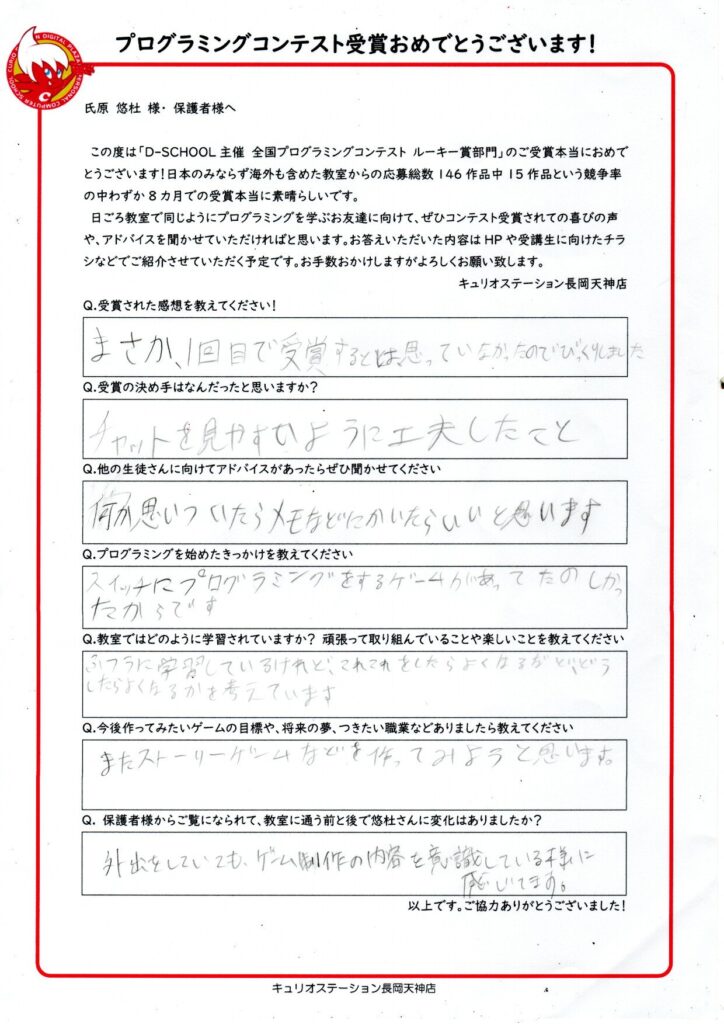 プログラミングコンテスト受賞おめでとうございます!
氏原 悠杜 様・ 保護者様へ
この度は「D-SCHOOL主催 全国プログラミングコンテスト ルーキー賞部門」のご受賞本当におめで
とうございます!日本のみならず海外も含めた教室からの応募総数146作品中15作品という競争率
の中わずか8カ月での受賞本当に素晴らしいです。
日ごろ教室で同じようにプログラミングを学ぶお友達に向けて、ぜひコンテスト受賞されての喜びの声
や、アドバイスを聞かせていただければと思います。お答えいただいた内容はHPや受講生に向けたチラ
シなどでご紹介させていただく予定です。お手数おかけしますがよろしくお願い致します。
キュリオステーション長岡天神店
Q.受賞された感想を教えてください!
まさか、1回目で受賞するとは、思っていなかったのでびっくりしました
Q.受賞の決め手はなんだったと思いますか?
チャットを見やすいように工夫したこと
Q.他の生徒さんに向けてアドバイスがあったらぜひ聞かせてください
何か思いついたらメモなどにかいたらいいと思います
Q.プログラミングを始めたきっかけを教えてください
スイッチにプログラミングをするゲームがあってたのしかっ
たからです
Q.教室ではどのように学習されていますか? 頑張って取り組んでいることや楽しいことを教えてください
ふつうに学習しているけれど、これこれをしたらよくなるかど、どう
したらよくなるかを考えています
Q.今後作ってみたいゲームの目標や、将来の夢、つきたい職業などありましたら教えてください
またストーリーゲームなどを作ってみようと思います。
Q. 保護者様からご覧になられて、教室に通う前と後で悠杜さんに変化はありましたか?
外出をしていても、ゲーム制作の内容を意識している様に
感じてます。
以上です。ご協力ありがとうございました!
キュリオステーション長岡天神店